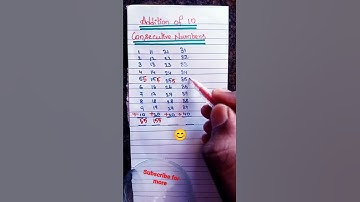 Addition of 10
Consecutive Numbers
1 11 21 31
2 12 22 32
3 13 23 33
4 14 24 34
55 155 255 35
6 16 26 36
7 17 27 37
8 18 28 38
9 19 29 39
+10 +20 +30 +40
55 155
Subscribe for
more